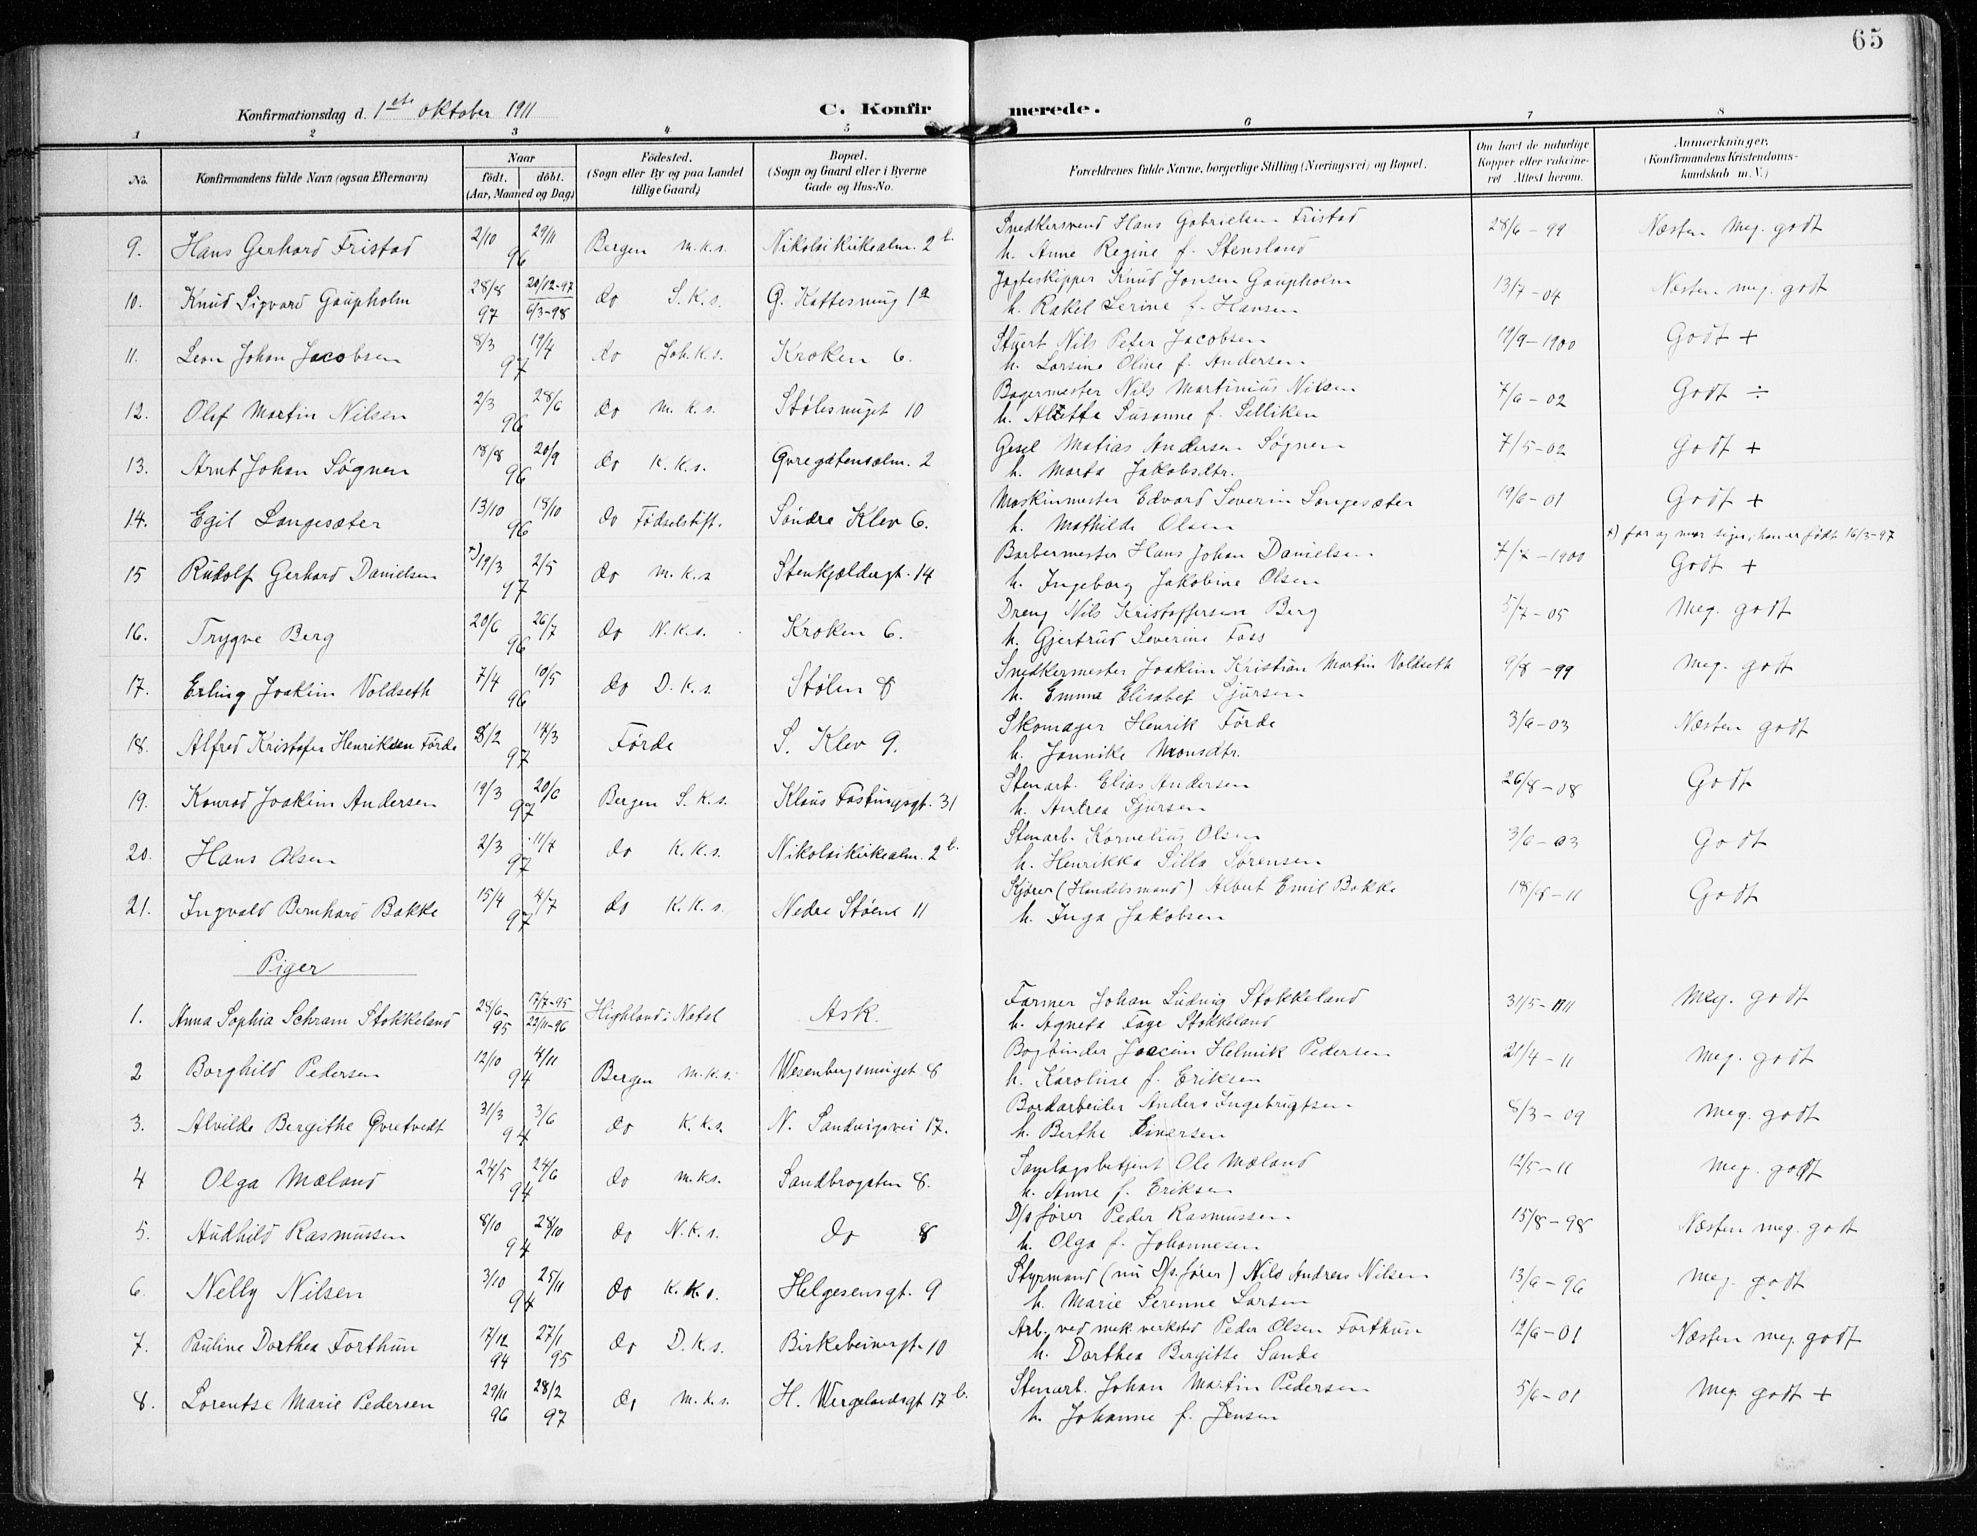 65
Konfirmationsdag d. 1ste oktober 1911 C. Konfirmerede.
1 2 3 4 5 6 7 8
No. Konfirmandens fulde Navn (ogsaa Efternavn) Naar født. døbt. (Aar, Maaned og Dag) Fødested. (Sogn eller By og paa Landet tillige Gaard) Bopæl. (Sogn og Gaard eller i Byerne Gade og Hus-No. Forældrenes fulde Navne, borgerlige Stilling (Næringsvei) og Bopæl. Om havt de naturlige Kopper eller vaccineret. Attest herom. Anmerkninger. (Konfirmandens Kristendomskundskab m. V.)
9. Hans Gerhard Fristad 2/10 29/11 96 Bergen m.k.s. Nikolaikirkealm. 2 b. Snedkersvend Hans Gabrielsen Fristad 28/6-99 Næsten meg. godt
h. Anne Regine f. Stensland
10. Knud Sigvard Gaupholm 28/8 97 20/12-97 6/3-98 do S.k.s. G. Kattesmug 1a Jagteskipper Knud Jonsen Gaupholm 13/7-04 Næsten meg. godt
h. Rakel Serine f. Hansen
11. Leon Johan Jacobsen 8/3 19/4 97 do Joh.k.s. Kroken 6. Stuert Nils Peter Jacobsen 19/9-1900 Godt +
h. Lorsine Oline f. Andersen
12. Olaf Martin Nilsen 2/3 28/6 96 do m.k.s. Stølesmuget 10 Bagermester Nils Martinius Nilsen 7/6-02 Godt ÷
h. Alette Susanne f. Selliken
13. Arnt Johan Søgnen 18/8 20/9 96 do K.K.s. Øvregatensalm. 2 Gesel Matias Andersen Søgnen 7/5-02 Godt +
h. Marta Jakobsdtr.
14. Egil Langesæter 13/10 18/10 96 do Fødselstift. Søndre Klev 6. Maskinmester Edvard Severin Langesæter 19/6-01 Godt +
h. Mathilde Olsen
x) far og mor siger, han er født 16/3-97
15 Rudolf Gerhard Danielsen x) 19/3 2/5 97 do m.k.s Stenkjældergt. 14 Barbermester Hans Johan Danielsen 7/7-1900 Godt +
h. Ingeborg Jakobine Olsen
16. Trygve Berg 20/6 26/7 96 do N.k.s. Kroken 6. Dreng Nils Kristoffersen Berg 5/7-05 Meg. godt
h. Gjertrud Severine Foss
17. Erling Joakim Voldseth 7/4 10/5 96 do D.k.s. Stølen 8 Snedkermester Joakim Kristian Martin Voldseth 9/8-99 Meg. godt
h. Emma Elisabet Sjursen
18. Alfred Kristofer Henriksen Førde 8/2 14/3 97 Førde S. Klev 9. Skomager Henrik Førde 3/6-03 Næsten godt
h. Jannike Monsdtr.
19. Konrad Joakim Andersen 19/3 20/6 97 Bergen S.k.s. Klaus Fastingsgt. 31 Stenarb. Elias Andersen 26/8-08 Godt
h. Andrea Sjursen
20. Hans Olsen 2/3 11/7 97 do K.K.s. Nikolaikirkealm. 2 b. Stenarb. Kornelius Olsen 3/6-03 Godt
h. Henrikka Silla Sørensen
21. Ingvald Bernhard Bakke 15/4 4/7 97 do K.K.s. Nedre Støene 11 Kjører (Handelsmand) Albert Emil Bakke 18/8-11 Godt
h. Inga Jakobsen
Piger
1. Anna Sophia Schram Stokkeland 28/6-95 7/7-95 22/11-96 Highland i Natal Ask. Farmer Johan Ludvig Stokkeland 31/5-11 Meg. godt
h. Agneta Fage Stokkeland
2 Borghild Pedersen 12/10 4/11 94 Bergen m.k.s. Wesenbergsmuget 8 Bogbinder Joacim Helmik Pedersen 21/4-11 Meg. godt
h. Karoline f. Eriksen
3. Alvilde Bergithe Øvretvedt 31/3 3/6 94 do K.k.s. N. Sandvigsvei 17. Bordarbeider Anders Ingebrigtsen 8/3-09 Meg. godt
h. Berthe Einersen
4 Olga Mæland 24/5 24/6 94 do m.k.s. Sandbrogaten 8. Samlagsbetjent Ole Mæland 12/5-11 Meg. godt
h. Anne f. Eriksen
5. Audhild Rasmussen 8/10 28/10 94 do N.k.s. do 8 D/s fører Peder Rasmussen 15/8-98 Næsten meg. godt
h. Olga f. Johannesen
6. Nelly Nilsen 3/10 25/11 94 do K.K.s. Helgesensgt. 9 Styrmand (nu D/s. fører) Nils Andreas Nilsen 13/6-96 Meg. godt
h. Marie Serenne Larsen
7. Pauline Dorthea Forthun 17/12 94 27/1 95 do D.k.s. Birkebeinergt. 10 Arb. ved mek. verksted Peder Olsen Forthun 12/6-01 Næsten meg. godt
h. Dorthea Bergitte Sande
8. Lorentse Marie Pedersen 29/11 96 28/2 97 do m.k.s. H. Wergelandsgt 17 b. Stenarb. Johan Martin Pedersen 5/6-01 Meg. godt +
h. Johanne f. Jensen